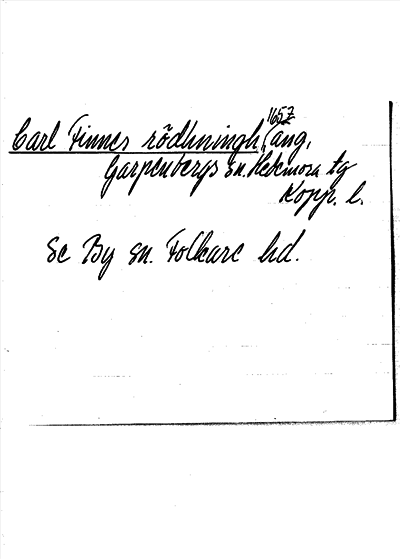 1657
Carl Finnes rödhningh, (ang.
Garpenbergs sn. Hedemora tg
Kopp. l.
Se By sn. Folkare hd.